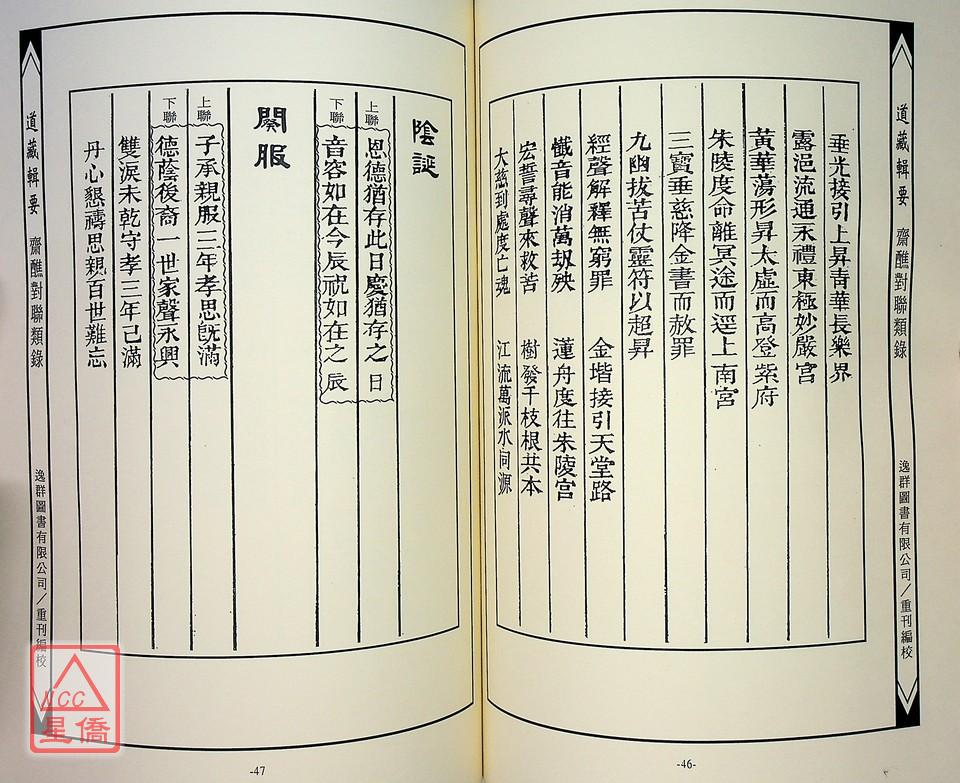 道藏輯要 齋醮對聯類錄 逸群圖書有限公司／重刊編校
垂光接引上昇青華長樂界
露浥流通永禮東極妙嚴宮
黃華蕩形昇太虛而高登紫府
朱陵度命離冥途而逕上南宮
三寶垂慈降金書而赦罪
九幽拔苦仗靈符以超昇
經聲解釋無窮罪 金堦接引天堂路
懺音能消萬刼殃 蓮舟度往朱陵宮
宏誓尋聲來救苦 樹發千枝根共本
大慈到處度亡魂 江流萬派水同源
-46-
陰誕
上聯 恩德猶存此日慶猶存之日
下聯 音容如在今辰祝如在之辰
闋服
上聯 子承親服三年孝思既滿
下聯 德蔭後裔一世家聲永興
雙淚未乾守孝三年已滿
丹心懇禱思親百世難忘
道藏輯要 齋醮對聯類錄 逸群圖書有限公司／重刊編校
-47
NCC
星僑